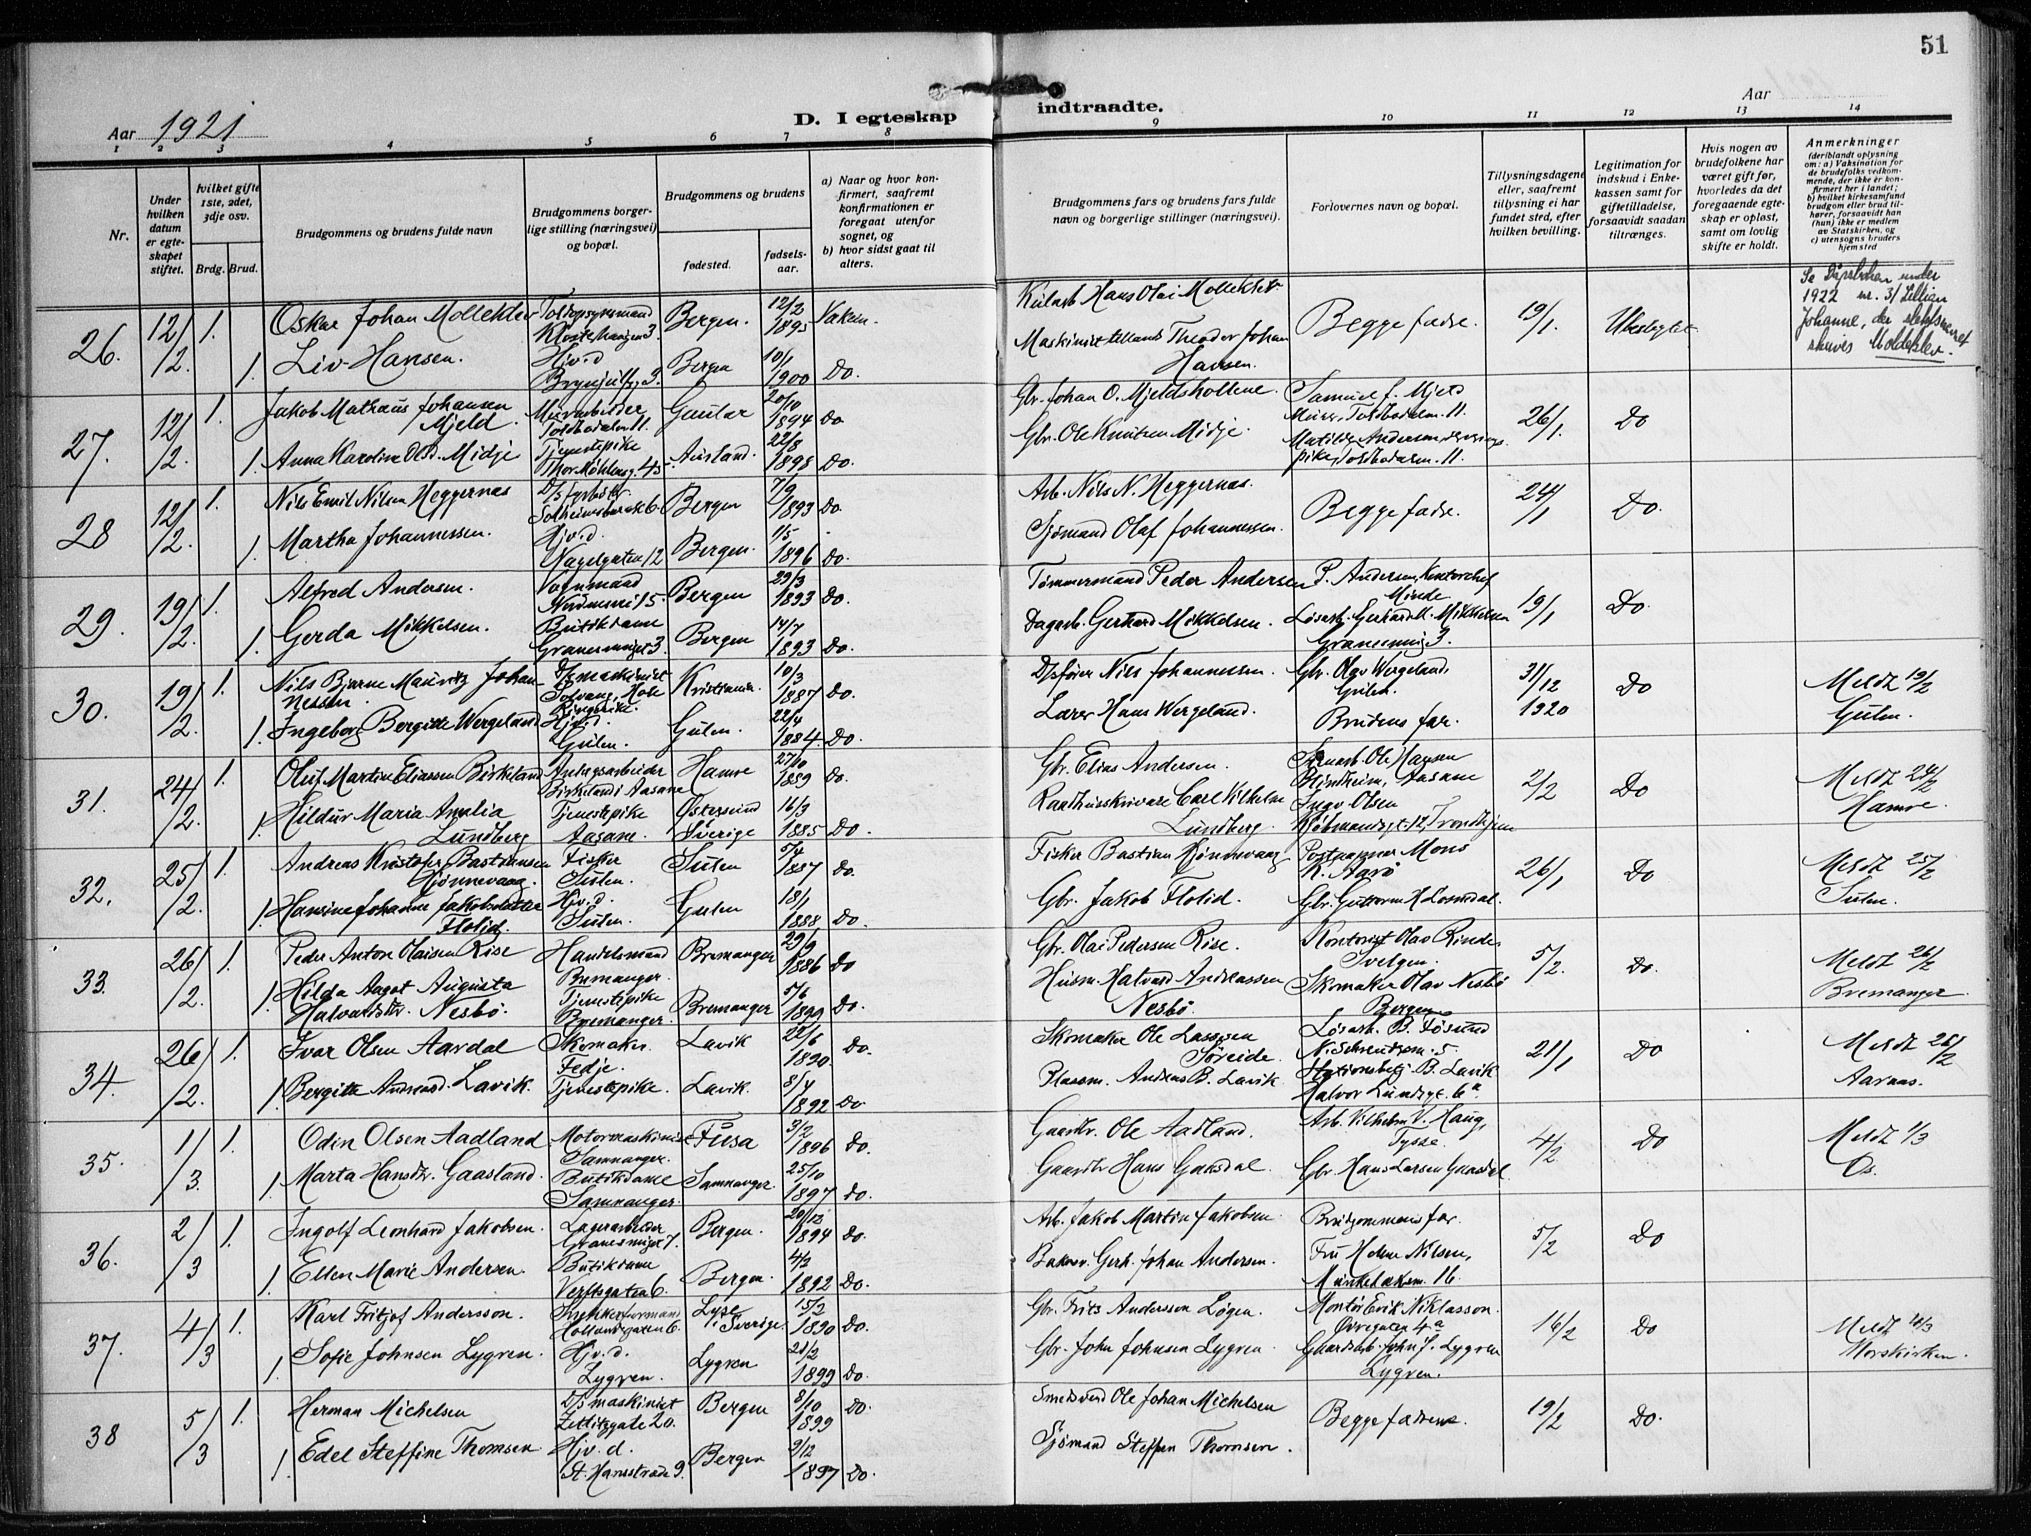 51
Aar 1921
D. I egteskap
indtraadte.
Aar
1 2 3 4 5 6 7 8 9 10 11 12 13 14
Nr.
Under hvilken datum er egteskapet stiftet.
hvilket gifte 1ste, 2det, 3dje osv.
Brdg. Brud.
Brudgommens og brudens fulde navn
Brudgommens borgerlige stilling (næringsvei) og bopæl.
Brudgommens og brudens
fødested.
fødselsaar.
a) Naar og hvor konfirmert, saafremt konfirmationen er foregaat utenfor sognet, og
b) hvor sidst gaat til alters.
Brudgommens fars og brudens fars fulde navn og borgerlige stillinger (næringsvei).
Forlovernes navn og bopæl.
Tillysningsdagene eller, saafremt tillysning ei har fundet sted, efter hvilken bevilling.
Legitimation for indskud i Enkekassen samt for giftetilladelse, forsaavidt saadan tiltrænges.
Hvis nogen av brudefolkene har været gift før, hvorledes da det foregaaende egteskap er opløst, samt om lovlig skifte er holdt.
Anmerkninger
(deriblandt oplysning om: a) Vaksination for de brudefolks vedkommende, der ikke er konfirmert her i landet; b) hvilket kirkesamfund brudgom eller brud tilhører, forsaavidt han (hun) ikke er medlem av Statskirken, og c) utensogns bruders hjemsted
26. 12/2. 1. Oskar Johan Mollekler Bergen. 12/2 1895 Vaksin. Hans Olai Begge fædre. 19/1. Ubeslegtet
Se under 1922 nr. 31 Lillian Johanne, der
skrives
1. Liv Hansen. Hjv. d Bergen 10/1 1900 Do. Theodor Johan Hansen.
27. 12/2. 1. Jakob Mathæus Johansen Mjeld. Murarbeider Gaular 20/10 1894 Do Gbr. Johan O. Mjeldsholtene. Samuel J. Mjeld Murer, 11. 26/1. Do
1. Anna Karoline Olsd. Midje Tjenestepike 45 Aurland. 22/8 1898 Do. Gbr. Ole Knutsen Midje. Matilde Andersen
28 12/2. 1. Nils Emil Nilsen Heggernæs D/s fyrbøter Bergen 7/9 1893 Do. Arb. Nils N. Heggernæs. Begge fædre. 24/1 Do.
1. Martha Johannessen. Hjv. d. Nagelgaten 12 Bergen. 1/5 1896 Do. Sjømand Olaf Johannessen.
29. 19/2. 1. Alfred Andersen. Vognmand 15. Bergen 29/3 1893 Do. Tømmermand Peder Andersen P. Andersen, Kontorchef Minde 19/1 Do.
1. Gerda Mikkelsen. Butikdame 3 Bergen 14/7 1893 Do. Dagarb. Gerhard Mikkelsen. Løsarb. Gerhard M. Mikkelsen 3.
30. 19/2. 1. Nils Bjarne Mauritz Johannessen. D/s maskinist Solvang, Hole Ringerike. Kristiania 10/3 1887 Do. D/sfører Nils Johannessen. Gbr. Olav Wergeland, Gulen. 31/12 1920 Do Meldt 19/2 Gulen.
1. Ingeborg Bergitte Wergeland Hjv. d. Gulen. Gulen. 22/4 1884. Do. Lærer Hans Wergeland. Brudens far.
31. 24/2. 1. Oluf Martin Eliassen Birkeland Anlægsarbeider Birkeland i Aasane Hamre 27/10 1889 Do. Gbr. Elias Andersen. Ole Hansen Blindheim, Aasane 2/2 Do Meldt 24/2 Hamre.
1. Hildur Maria Amalia Lundberg Tjenestepike Aasane. Østersund Sverige 16/3 1885 Do. Raadhusskriver Carl Vilhelm Lundberg. Olsen 12, Trondhjem
32. 25/2. 1. Andreas Kristofer Bastiansen Hjønnevaag. Fisker Sulen. Sulen 5/4 1887 Do. Fisker Bastian Hjønnevaag Postaapner Mons K. Aarø 26/1 Do Meldt 25/2 Sulen.
1. Hansine Johanne Jakobsdatter Flolid. Hjv. d. Sulen. Gulen 18/1 1888 Do Gbr. Jakob Flolid. Gbr. Guttorm H.
33. 26/2. 1. Peder Anton Olaisen Rise Handelsmand Bremanger. Bremanger 29/9 1886 Do Gbr. Olai Pedersen Rise. Kontorist Olav Rinde Svelgen. 5/2. Do. Meldt 26/2 Bremanger.
1. Hilda Aagot Augusta Halvardsdtr. Nesbø. Tjenestepike Bremanger. Bremanger 5/6 1899 Do. Husm. Halvard Andreassen Nesbø. Skomaker Olav Nesbø Bergen
34. 26/2. 1. Ivar Olsen Aardal Skomaker Fedje. Lavik 22/6 1890. Do. Skomaker Ole Lassesen Søreide. Løsarb. B. 5. 21/1 Do Meldt 26/2
1. Bergitte Andreasd. Lavik. Tjenestepike. Lavik. 8/4 1892 Do Andreas B. Lavik B. Lavik Halvor Lundsgt. 6a.
35. 1/3. 1. Odin Olsen Aadland Motormaskinist Samnanger. Fusa 3/2 1896 Do. Gaardbr. Ole Aadland. Arb. Vilhelm V. Haug, Tysse. 4/2 Do Meldt 1/3 Os.
1. Marta Hansdtr. Gaasland. Butikdame Samnanger. Samnanger. 25/10 1897 Do. Gaardbr Hans Gaasdal. Gbr. Hans Larsen Gaasdal
36. 2/3 1. Ingolf Leonhard Jakobsen. Lagerarbeider 7. Bergen. 20/12 1894 Do. Arb. Jakob Martin Jakobsen. Brudgommens far. 5/2 Do
1. Ellen Marie Andersen. Butikdame Verftsgaten 6. Bergen. 4/2 1892 Do. Gerh. Johan Andersen. Fru Nilsen, 16.
37. 4/3 1. Karl Fritjof Andersson. Hollandergaten 6. Lyse, Sverige. 15/2 1890 Do. Gbr. Frits Andersson Løgen. Montør Erik Niklasson. Øvregaten 4a 16/2 Do Meldt Korskirken.
1. Sofie Johnsen Lygren. Hjv. d. Lygren. Lygren 21/2 1899 Do. Gbr. John Johnsen Lygren. Gaardbr. John J. Lygren Lygren.
38 5/3 1. Herman Michelsen D/s maskinist 20. Bergen 8/10 1899 Do. Smedsvend Ole Johan Michelsen Begge fædrene. 19/2 Do.
1. Edel Steffine Thomsen. Hjv. d. St. Hansstræde 9. Bergen 2/12 1897 Do. Sjømand Steffen Thomsen.